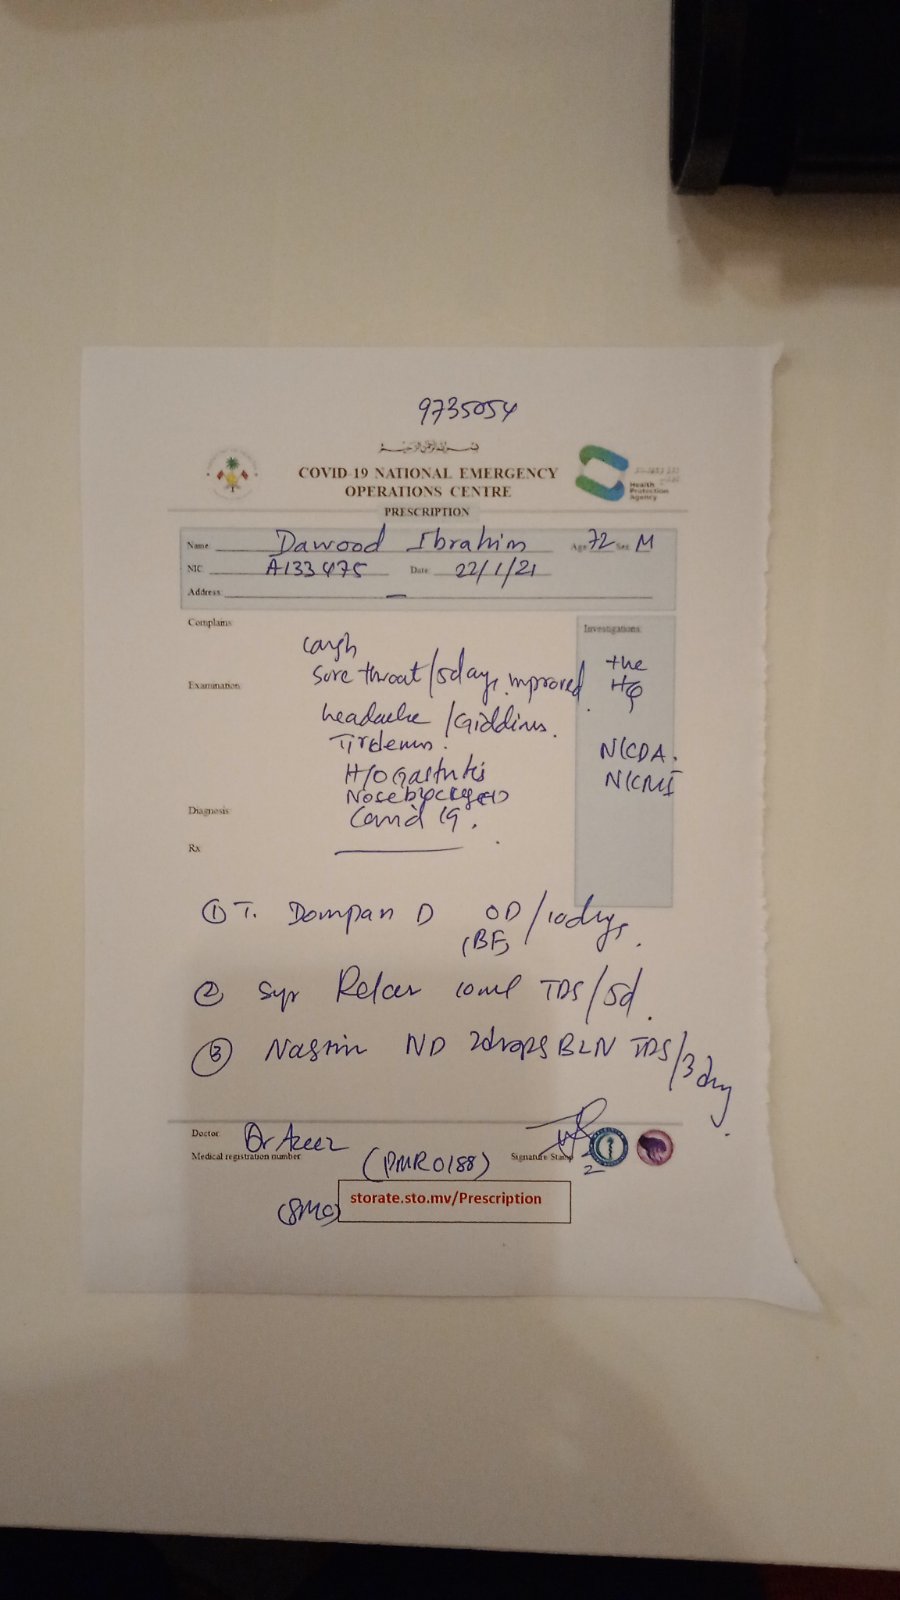 9735054
COVID-19 NATIONAL EMERGENCY
OPERATIONS CENTRE
Health
Protection
Agency
PRESCRIPTION
Name Dawood Ibrahim Age 72 Sex M
NIC A133475 Date 22/1/21
Address
Complains
Investigations
cough
Sore throat/5days improved
Examination
headache / Giddins.
H/O Gastritis
Nose blocked
NKDA.
Diagnosis
Covid 19.
Rx
① T. Dompan D OD/10days.
(BF)
② Syr Relcer 10ml TDS/5d.
③ ND 2drops TDS/3day.
Doctor Dr Azeez
Medical registration number (PMR0188) Signature/Stamp
storate.sto.mv/Prescription